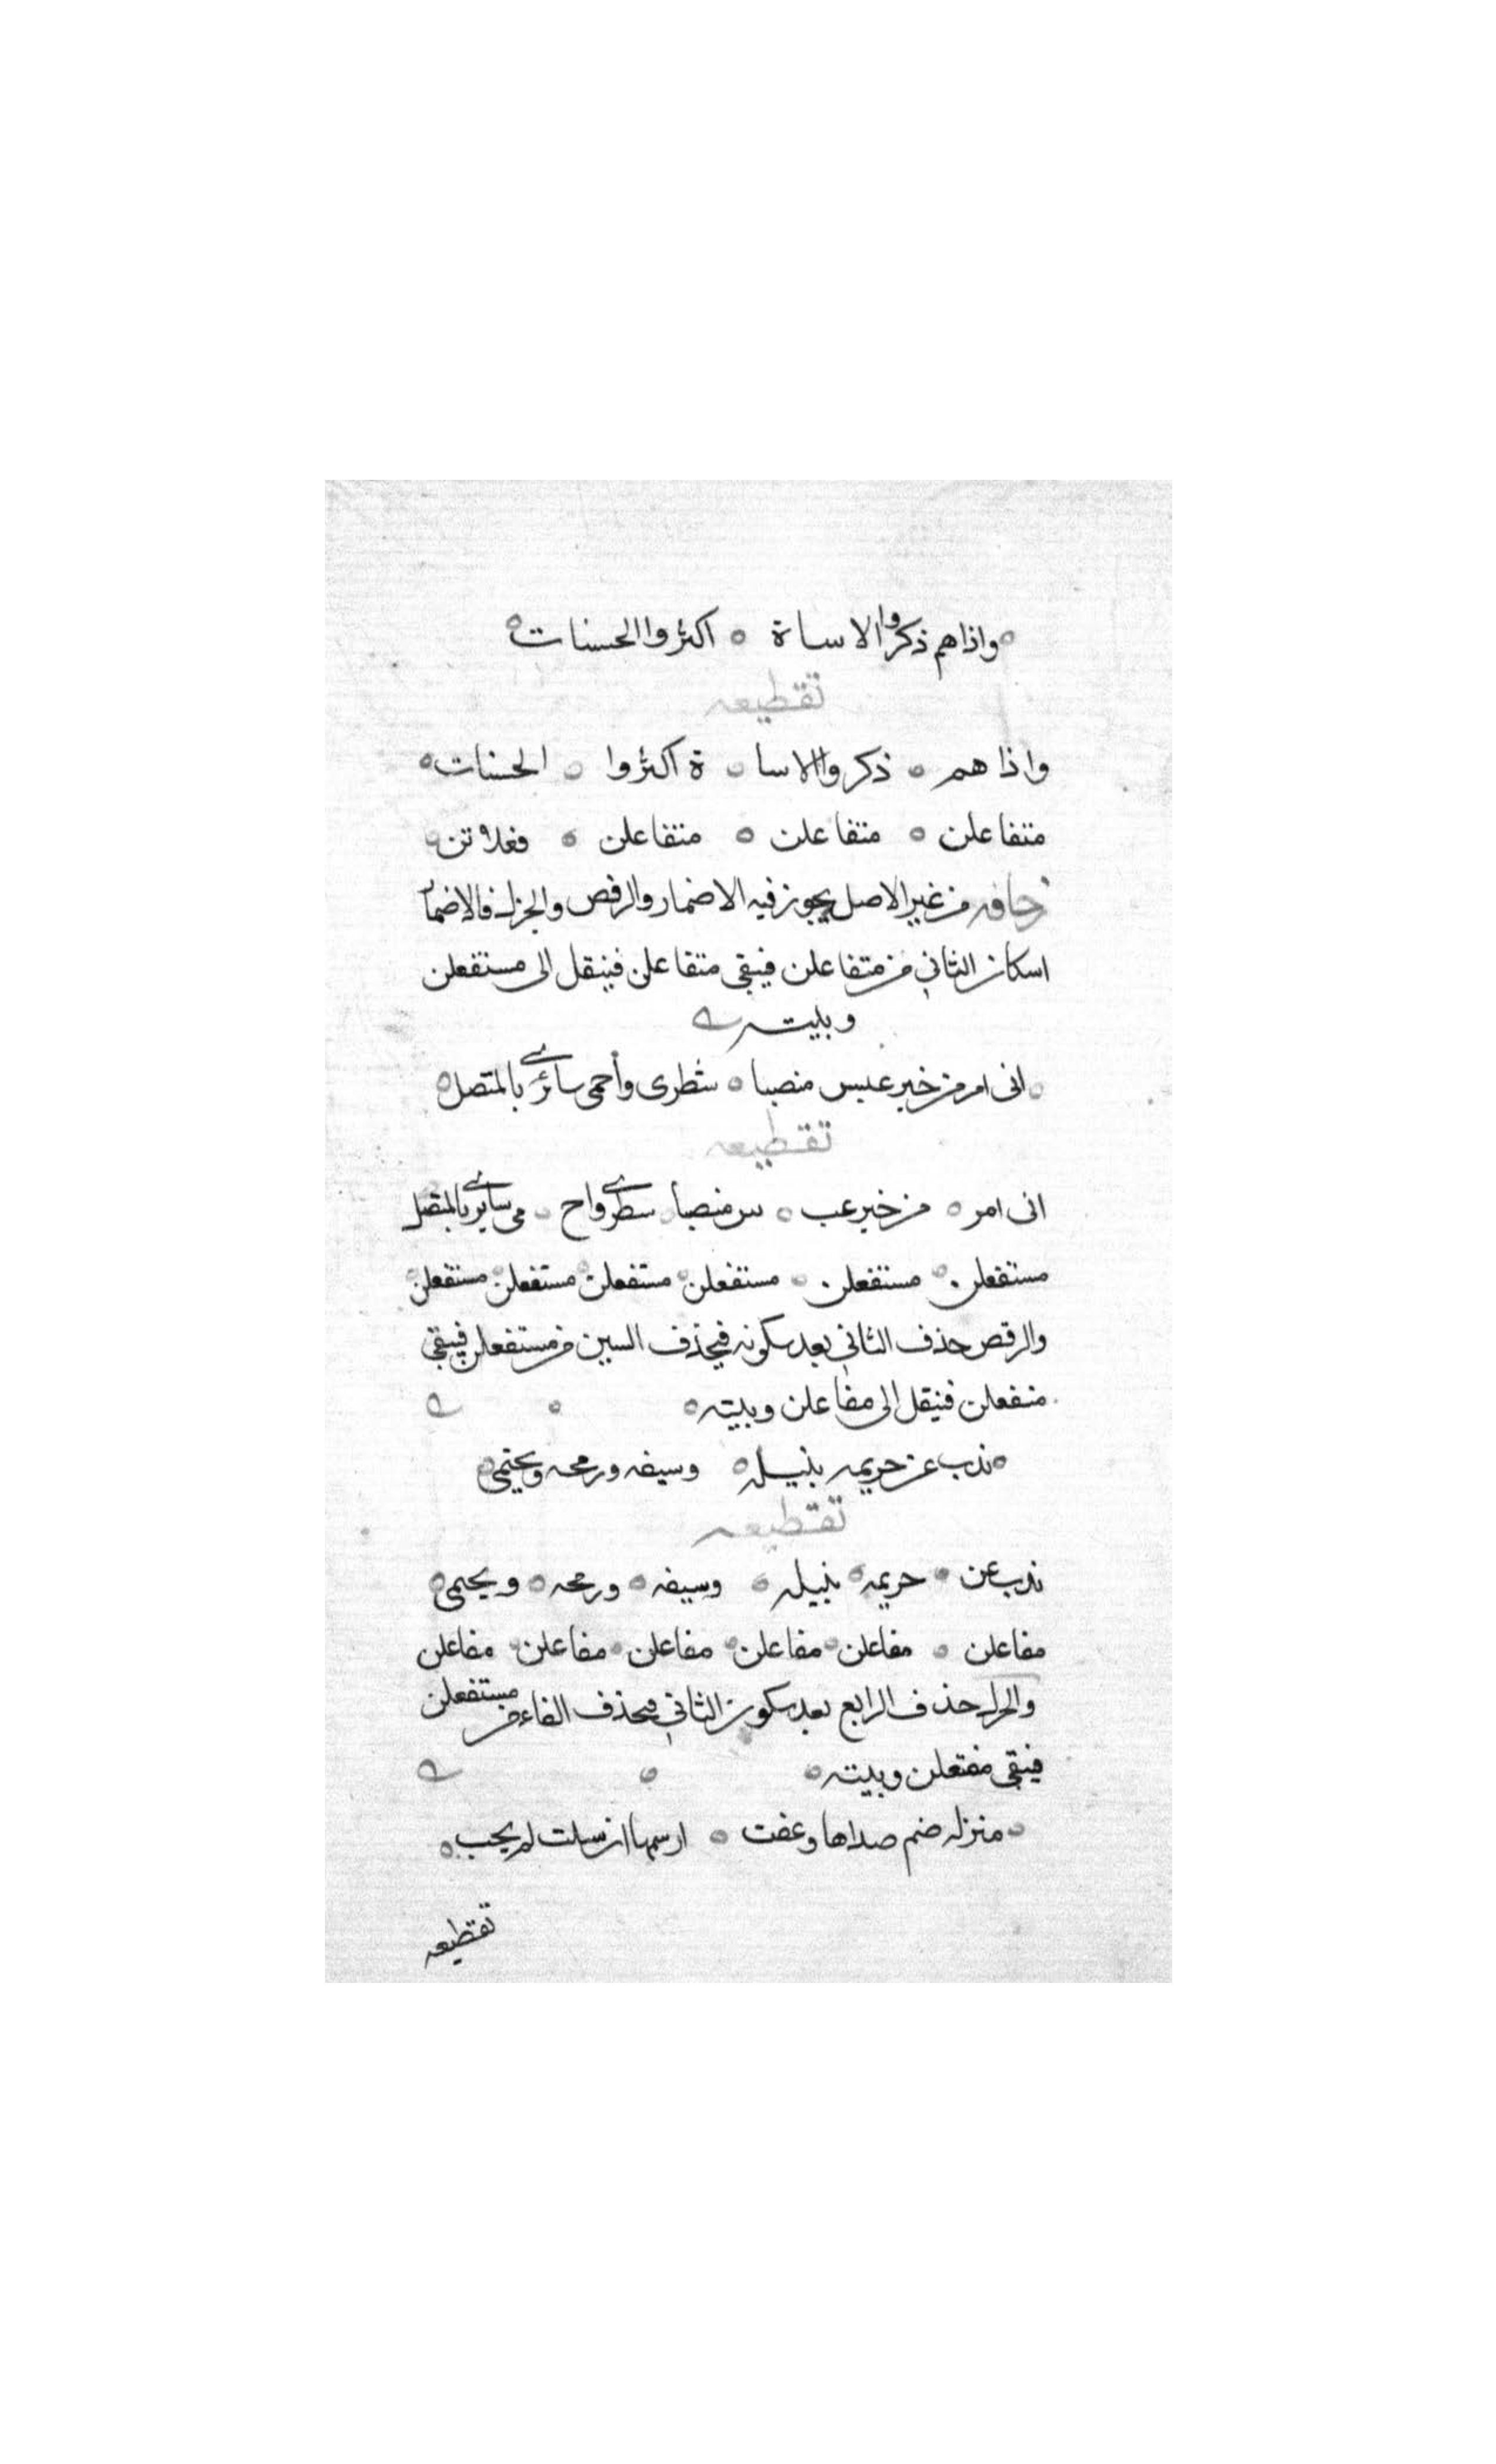 واذاهم ذكروا الاساة ه اكثروا الحسنات ه
تقطيعه
واذاهم ه ذكروا الاسا ه ة اكثروا ه الحسنات ه
متفاعلن ه متفاعلن ه متفاعلن ه فعلاتن
زحافه من غير الاصل يجوز فيه الاضمار والرقص والجزل فالاضمار
اسكان الثاني من متفاعلن فيبقى متفاعلن فينقل الى مستفعلن
وبيته
ه انى امر من خير عبس منصبا ه شطرى وأحمى سائرى بالمتصل ه
تقطيعه
انى امر ه من خير عب ه س منصبا شطرى واح ه مى سايرى بالمتصل
مستفعلن ه مستفعلن ه مستفعلن ه مستفعلن ه مستفعلن ه مستفعلن ه
والرقص حذف الثاني بعد سكونه فيحذف السين من مستفعلن فيبقى
متفعلن فينقل الى مفاعلن وبيته ه ه
ه يذب عن حريمه بنبيله ه وسيفه ورمحه ويحتمى ه
تقطيعه
يذب عن ه حريمه ه بنبيله ه وسيفه ه ورمحه ه ويحتمى ه
مفاعلن ه مفاعلن ه مفاعلن ه مفاعلن ه مفاعلن ه مفاعلن
والجزل حذف الرابع بعد سكون الثاني فيحذف الفاء من مستفعلن
فيبقى مفتعلن وبيته ه ه
ه منزله ضم صداها وعفت ه ارسمها ان سلت لم يجب ه
تقطيعه